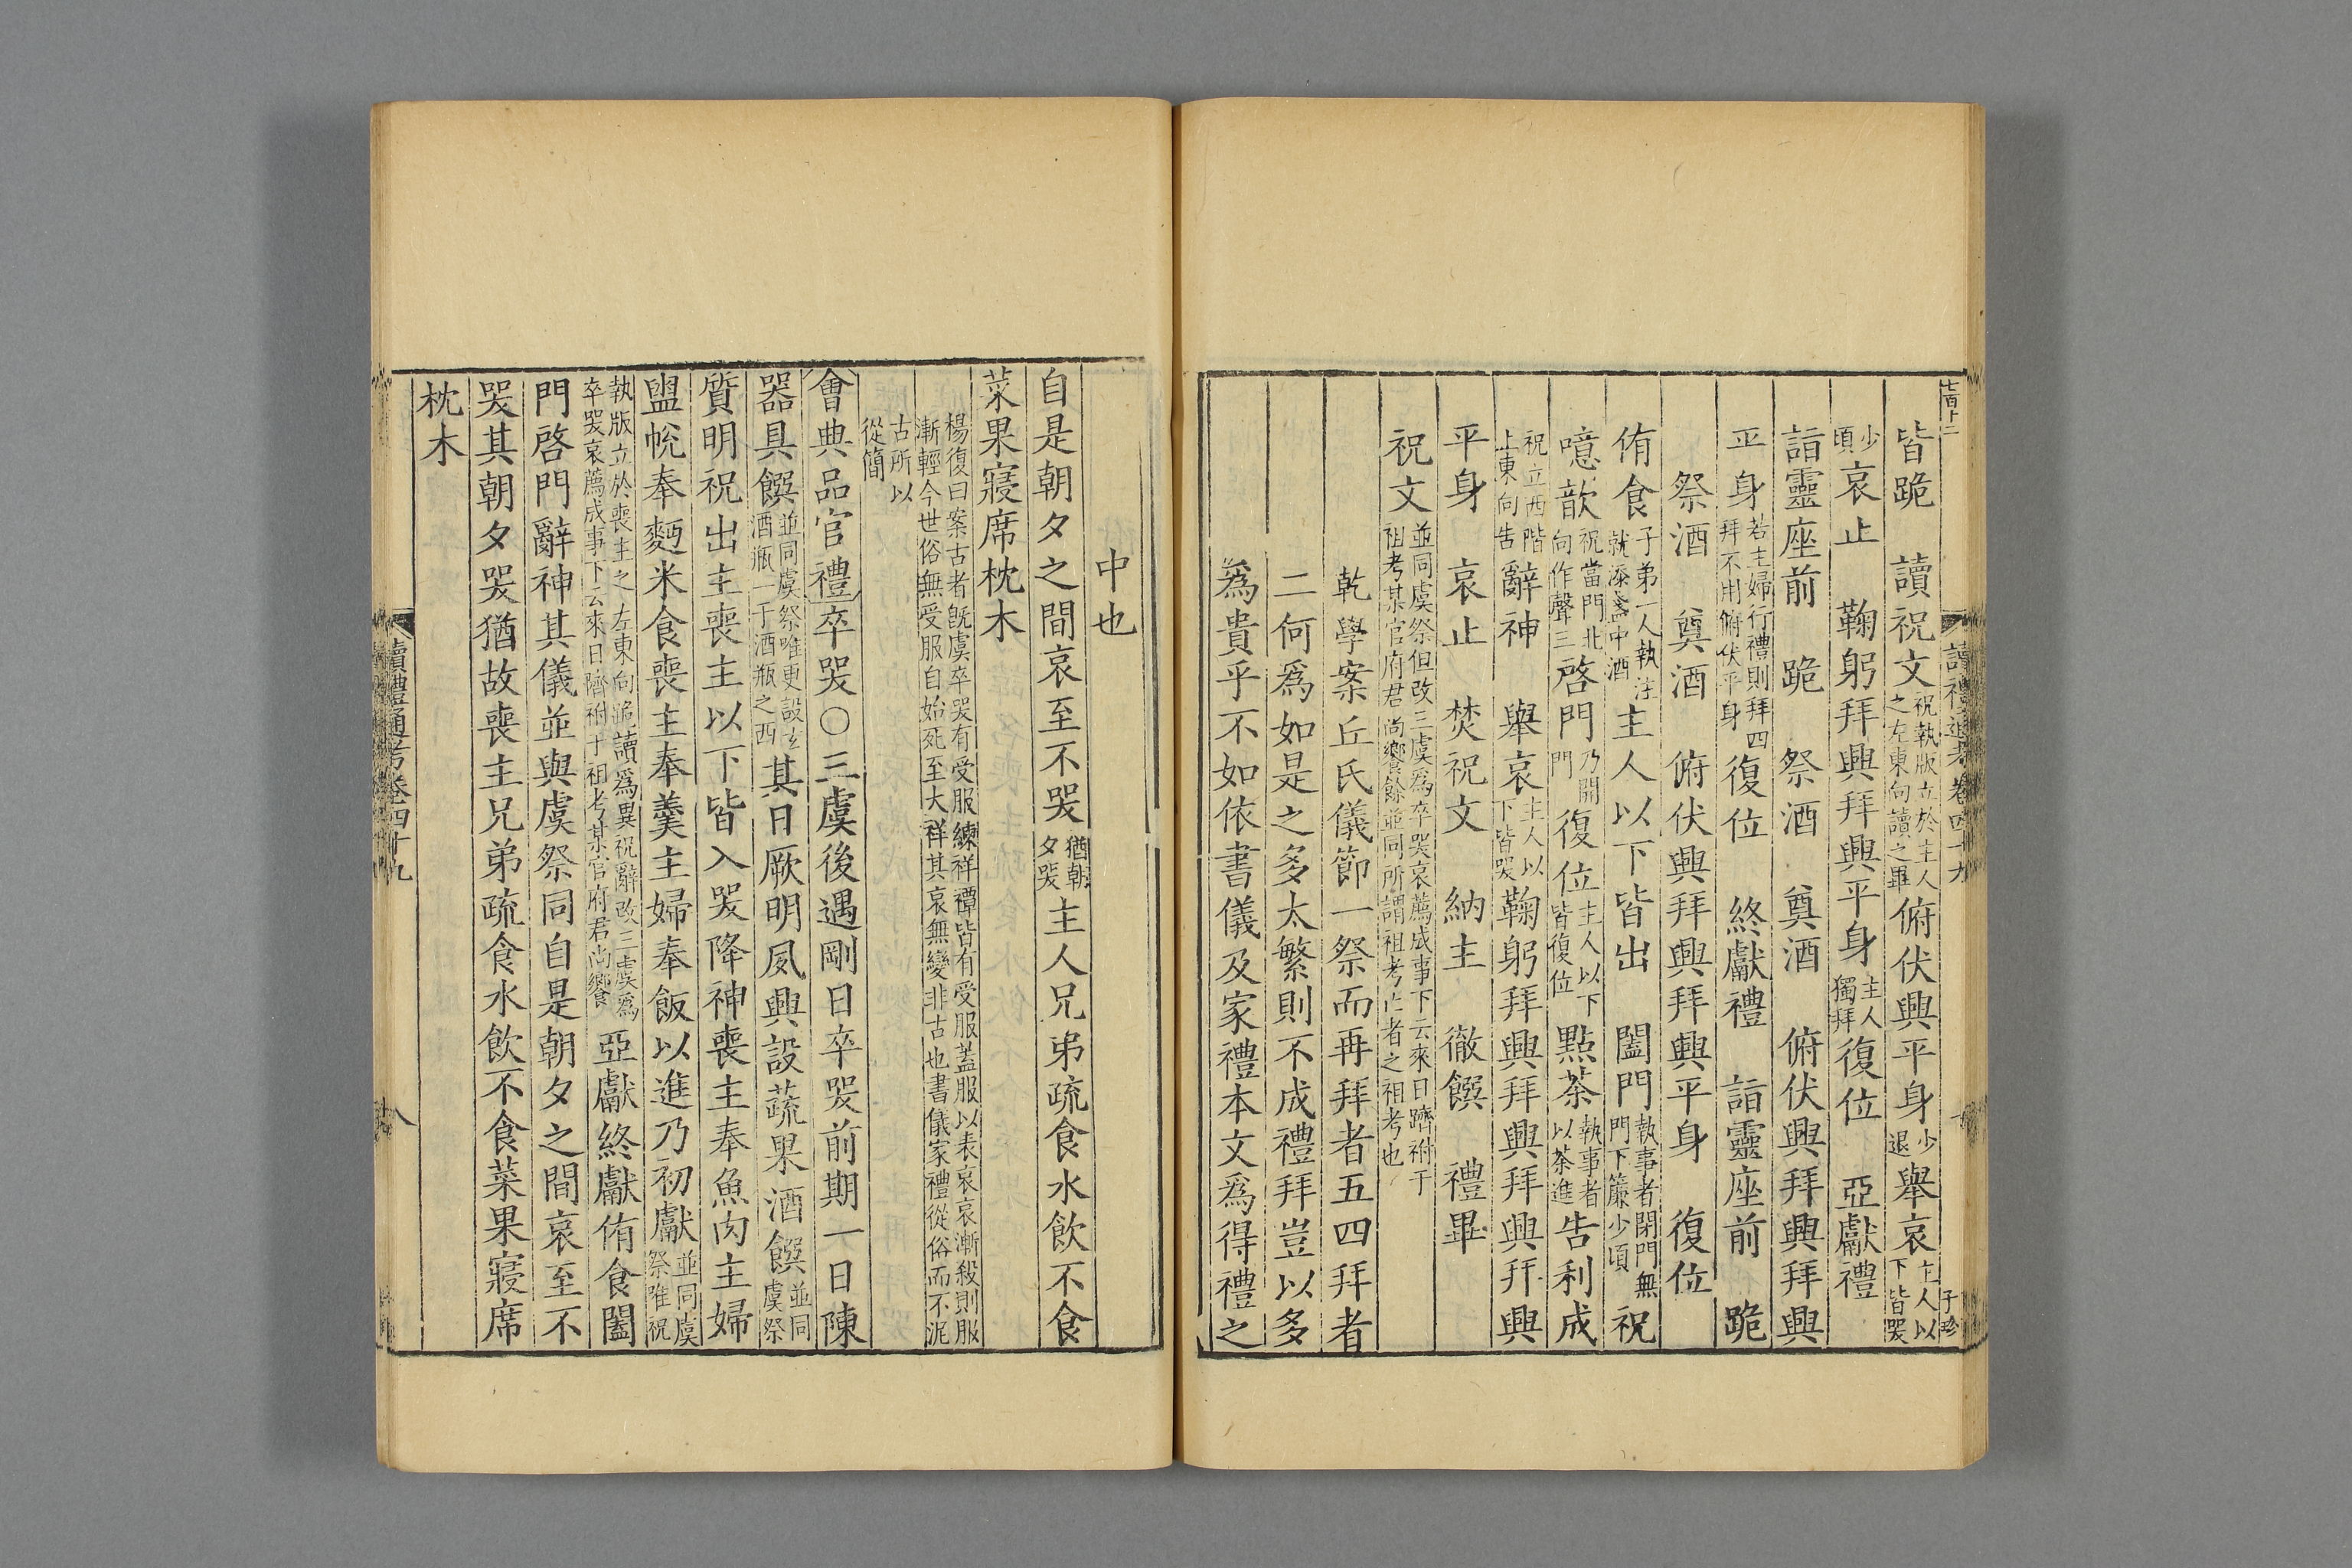 皆跪　讀祝文祝執版立於主人之左東向讀之畢俯伏興平身少退舉哀主人以下皆哭
少頃哀止　鞠躬拜興拜興平身主人獨拜復位　亞獻禮
詣靈座前　跪　祭酒　奠酒　俯伏興拜興拜興
平身若主婦行禮則拜四拜不用俯伏平身復位　終獻禮　詣靈座前　跪
祭酒　奠酒　俯伏興拜興拜興平身　復位
侑食子弟一人執注就添盞中酒主人以下皆出　闔門執事者閉門無門下簾少頃祝
噫歆祝當門北向作聲三啓門乃開門復位主人以下皆復位點茶執事者以茶進告利成
祝立西階上東向告辭神　舉哀主人以下皆哭鞠躬拜興拜興拜興拜興
平身　哀止　焚祝文　納主　徹饌　禮畢
祝文並同虞祭但改三虞為卒哭哀薦成事下云來日躋祔于祖考某官府君尚饗餘並同所謂祖考亡者之祖考也
乾學案丘氏儀節一祭而再拜者五四拜者
二何爲如是之多太繁則不成禮拜豈以多
爲貴乎不如依書儀及家禮本文爲得禮之
讀禮通考卷四十九
中也
自是朝夕之間哀至不哭猶朝夕哭主人兄弟疏食水飲不食
菜果寢席枕木
楊復曰案古者旣虞卒哭有受服練祥禫皆有受服蓋服以表哀哀漸殺則服
漸輕今世俗無受服自始死至大祥其哀無變非古也書儀家禮從俗而不泥
古所以
從簡
會典品官禮卒哭〇三虞後遇剛日卒哭前期一日陳
器具饌並同虞祭唯更設玄酒瓶一于酒瓶之西其日厥明夙興設蔬果酒饌並同虞祭
質明祝出主喪主以下皆入哭降神喪主奉魚肉主婦
盥帨奉麪米食喪主奉羹主婦奉飯以進乃初獻並同虞祭唯祝
執版立於喪主之左東向跪讀爲異祝辭改三虞爲卒哭哀薦成事下云來日隮祔于祖考某官府君尚饗亞獻終獻侑食闔
門啓門辭神其儀並與虞祭同自是朝夕之間哀至不
哭其朝夕哭猶故喪主兄弟疏食水飲不食菜果寢席
枕木
讀禮通考卷四十九
八